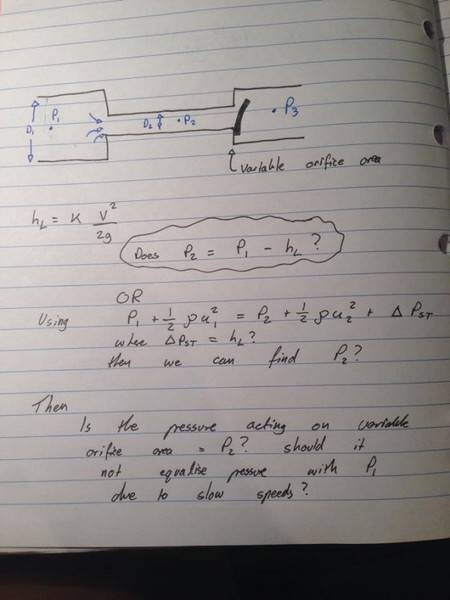 D₁ P₁ D₂ P₂ P₃
Variable orifice area
h_L = K V²/2g
Does P₂ = P₁ - h_L ?
OR
Using P₁ + ½ρu₁² = P₂ + ½ρu₂² + ΔP_ST
where ΔP_ST = h_L?
then we can find P₂?
Then
Is the pressure acting on variable
orifice area = P₂? should it
not equalise pressure with P₁
due to slow speeds?